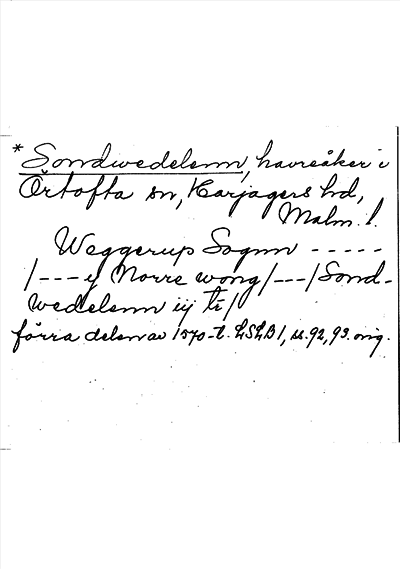 * Sondwedelenn, havreåker i
Örtofta sn, Harjagers hd,
Malm. l.
Weggerup Sognn - - - - -
/ - - - y Norre wong / - - - / Sond-
wedelenn iij tr /
förra delen av 1570-t. LSLB 1, ss. 92, 93. orig.